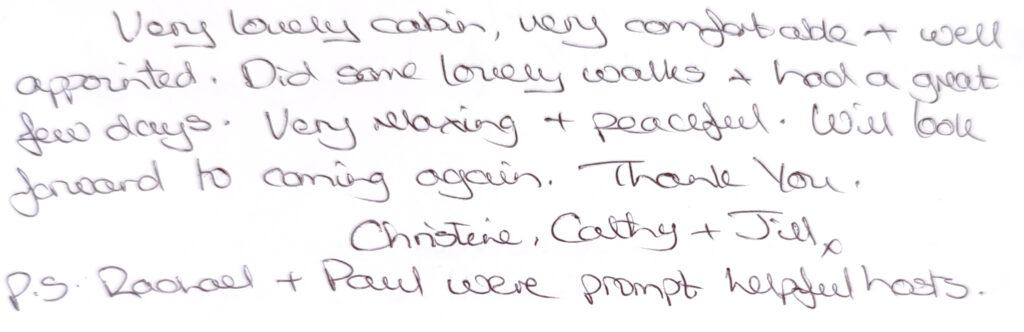 Very lovely cabin, very comfortable + well
appointed. Did some lovely walks + had a great
few days. Very relaxing + peaceful. Will look
forward to coming again. Thank You.
Christine, Cathy + Jill x
P.S. Rachael + Paul were prompt helpful hosts.